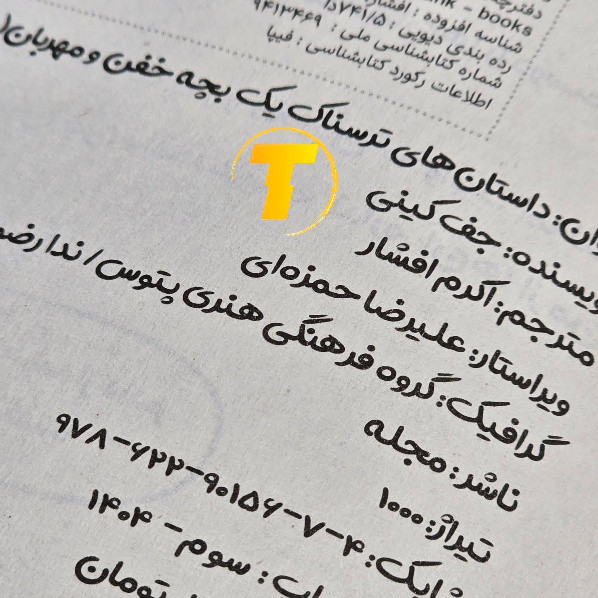 books - nk
شناسه افزوده : افشار
رده بندی دیویی : ۷۴۱/۵دا
شماره کتابشناسی ملی : ۹۴۱۳۴۶۹
اطلاعات رکورد کتابشناسی : فیپا
داستان های ترسناک یک بچه خفن و مهربان(
نویسنده: جف کینی
مترجم: اکرم افشار
ویراستار: علیرضا حمزه‌ای
گرافیک: گروه فرهنگی هنری پتوس/ ندا رضو
ناشر: مجله
تیراژ: ۱۰۰۰
شابک: ۴-۷-۹۰۱۵۶-۶۲۲-۹۷۸
سوم - ۱۴۰۴
تومان
T